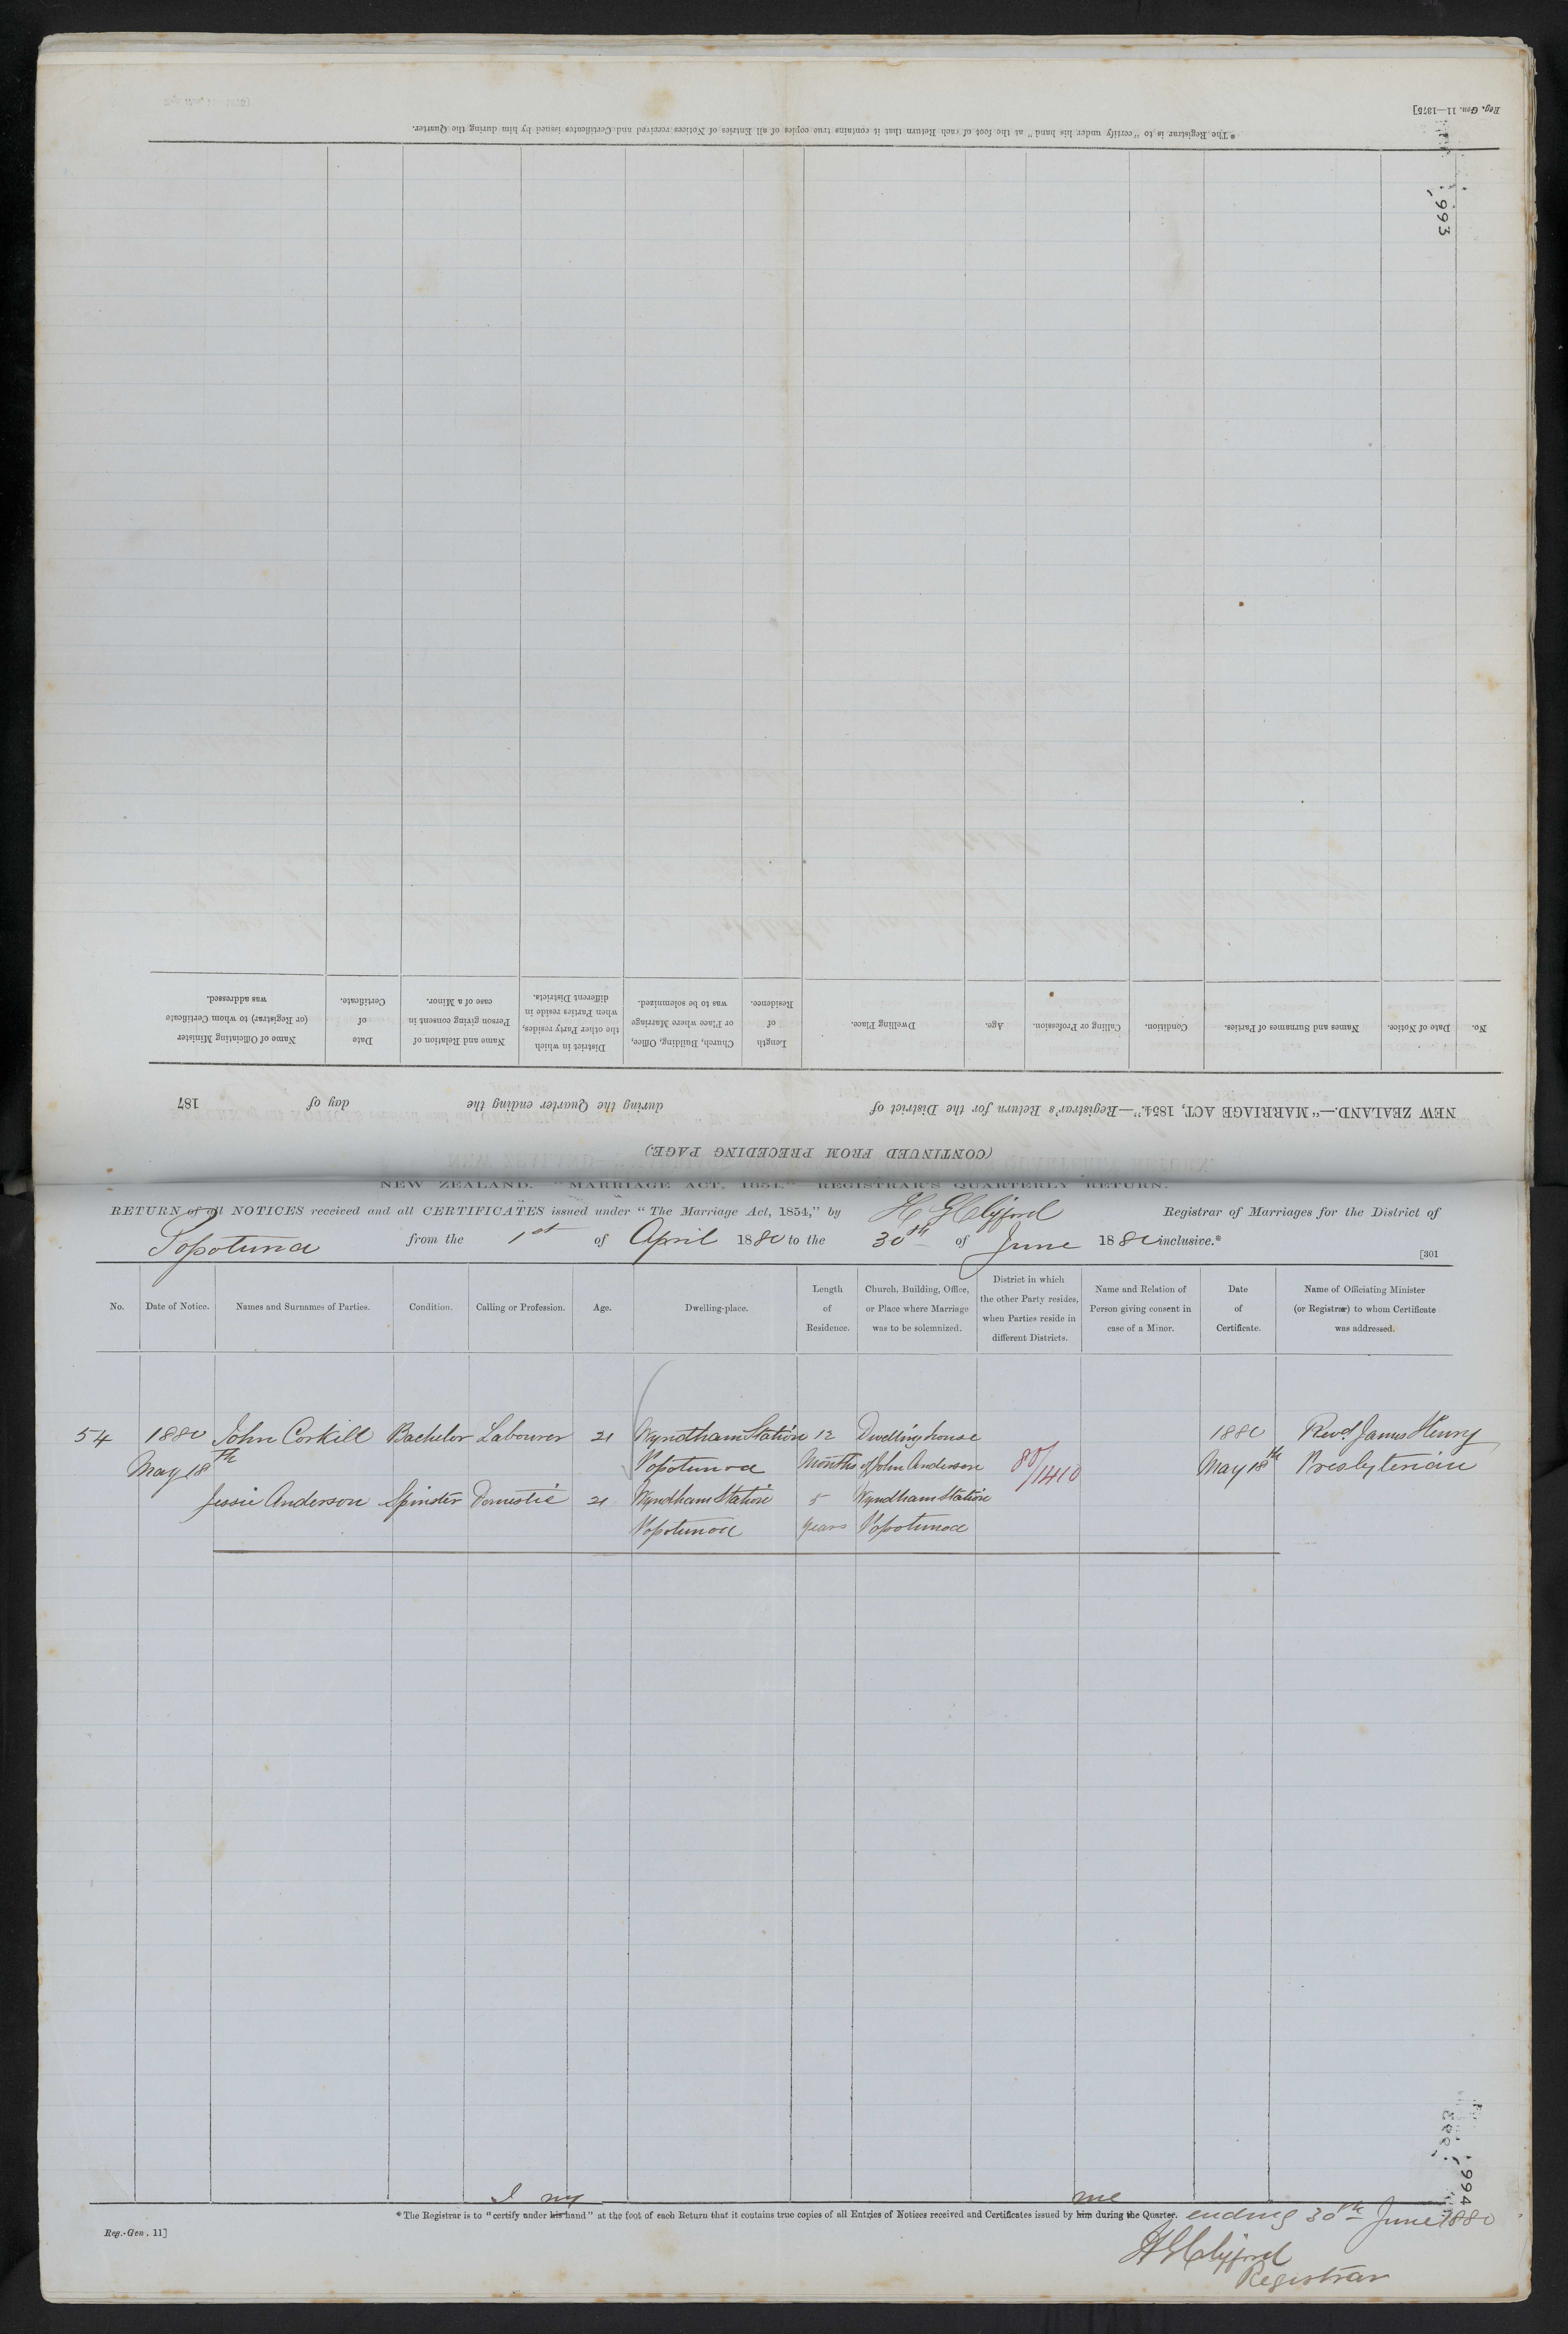 Reg. Gen. 11—1875]
* The Registrar is to "certify under his hand" at the foot of each Return that it contains true copies of all Entries of Notices received and Certificates issued by him during the Quarter.
993
No.
Date of Notice.
Names and Surnames of Parties.
Condition.
Calling or Profession.
Age.
Dwelling Place.
Length
of
Residence.
Church, Building, Office,
or Place where Marriage
was to be solemnized.
District in which
the other Party resides,
when Parties reside in
different Districts.
Name and Relation of
Person giving consent in
case of a Minor.
Date
of
Certificate.
Name of Officiating Minister
(or Registrar) to whom Certificate
was addressed.
NEW ZEALAND.—"MARRIAGE ACT, 1854."—Registrar's Return for the District of during the Quarter ending the day of 187
(CONTINUED FROM PRECEDING PAGE.)
NEW ZEALAND. "MARRIAGE ACT, 1854." REGISTRAR'S QUARTERLY RETURN.
RETURN of all NOTICES received and all CERTIFICATES issued under "The Marriage Act, 1854," by H G Clifford Registrar of Marriages for the District of
Popotunoa from the 1st of April 1880 to the 30th of June 1880 inclusive.*
[301
No.
Date of Notice.
Names and Surnames of Parties.
Condition.
Calling or Profession.
Age.
Dwelling-place.
Length
of
Residence.
Church, Building, Office,
or Place where Marriage
was to be solemnized.
District in which
the other Party resides,
when Parties reside in
different Districts.
Name and Relation of
Person giving consent in
case of a Minor.
Date
of
Certificate.
Name of Officiating Minister
(or Registrar) to whom Certificate
was addressed.
54 1880 John Corkill Bachelor Labourer 21 Wyndham Station 12 Dwelling house 1880 Revd James Henry
May 18th Popotunoa Months of John Anderson 80/1410 May 18th Presbyterian
Jessie Anderson Spinster Domestic 21 Wyndham Station 5 Wyndham Station
Popotunoa years Popotunoa
994
I my me
* The Registrar is to "certify under his hand" at the foot of each Return that it contains true copies of all Entries of Notices received and Certificates issued by him during the Quarter. ending 30th June 1880
Reg.-Gen. 11]
H G Clifford
Registrar